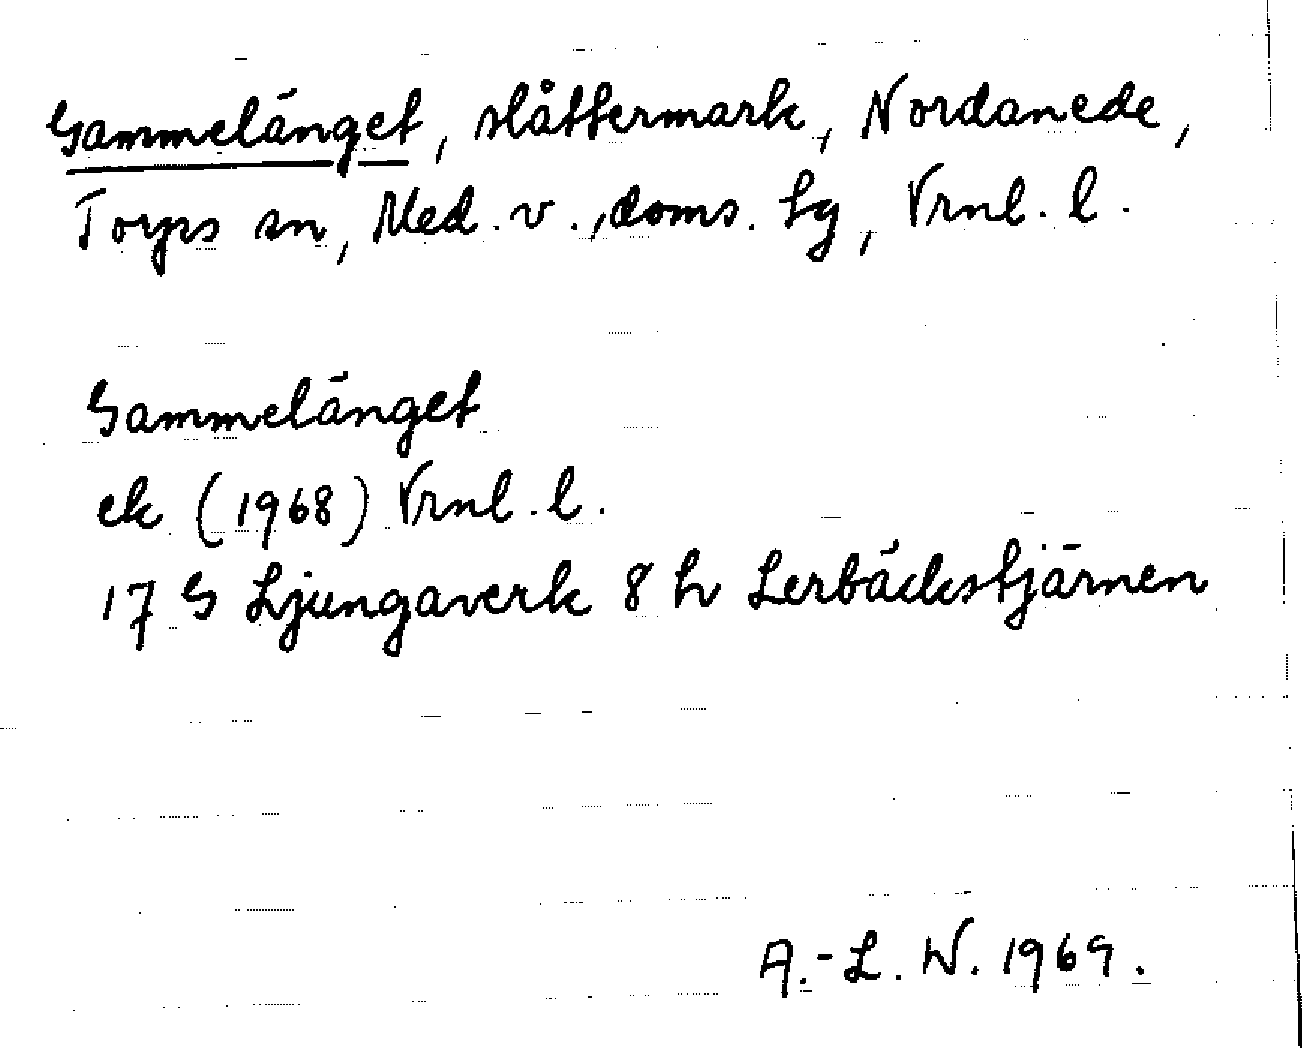 Gammelänget, slåttermark, Nordanede,
Torps sn, Med. v., doms. tg, Vrnl. l.
Gammelänget
ek (1968) Vrnl. l.
17 G Ljungaverk 8 h Lerbäckstjärnen
A.-L. W. 1969.